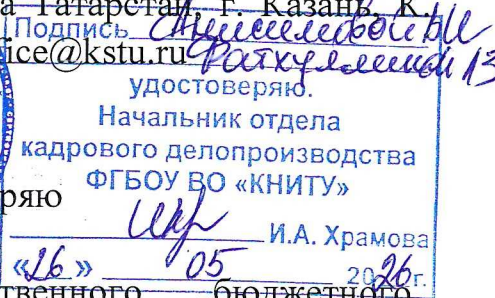 а Татарстан, г. Казань, К.
Подпись
ice@kstu.ru
удостоверяю.
Начальник отдела
кадрового делопроизводства
ФГБОУ ВО «КНИТУ»
ряю
И.А. Храмова
«26» 05 2026г.
твенного бюджетного